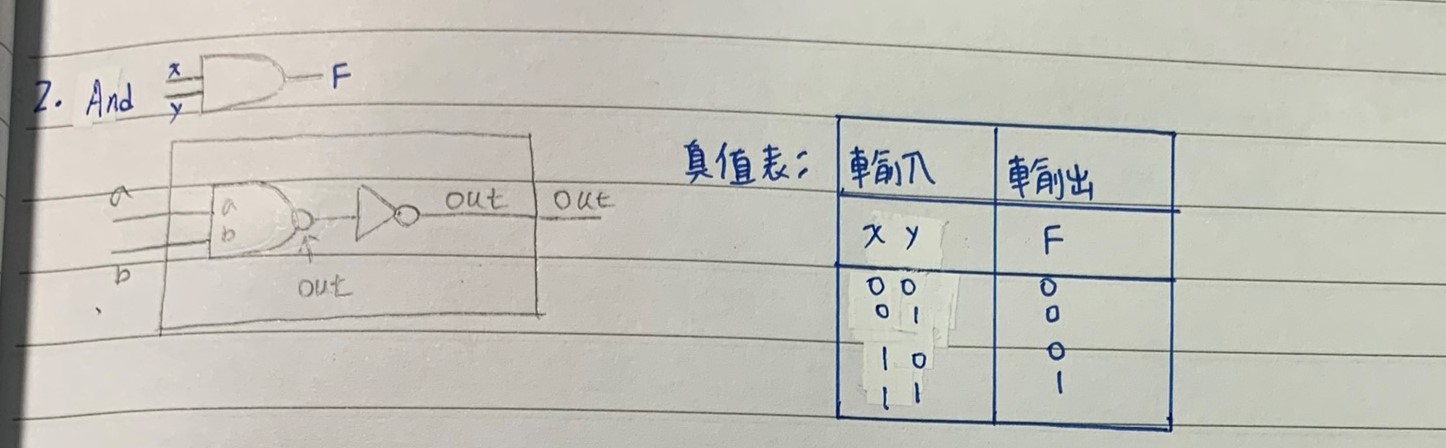 2. And x y F
a a b out out
b out
真值表: 輸入 輸出
x y F
0 0 0
0 1 0
1 0 0
1 1 1